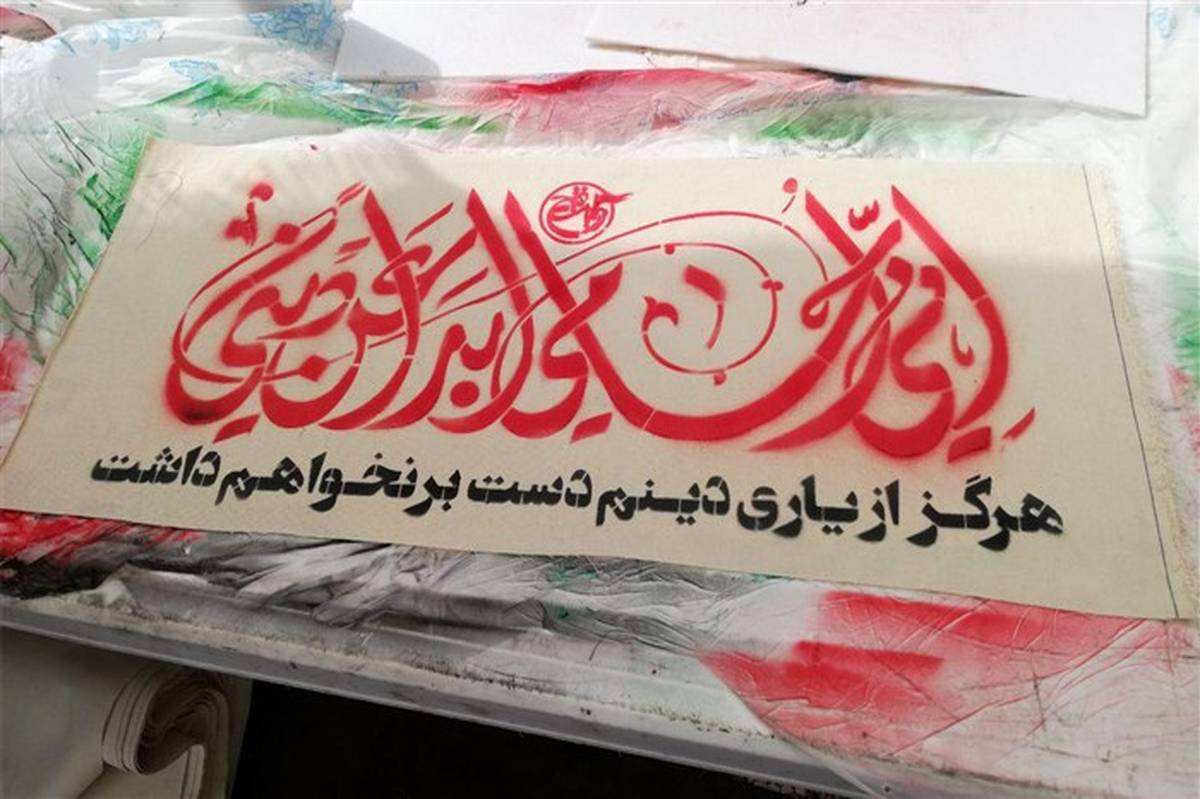 إني أحامي أبدا عن ديني
هرگز از یاری دینم دست بر نخواهم داشت